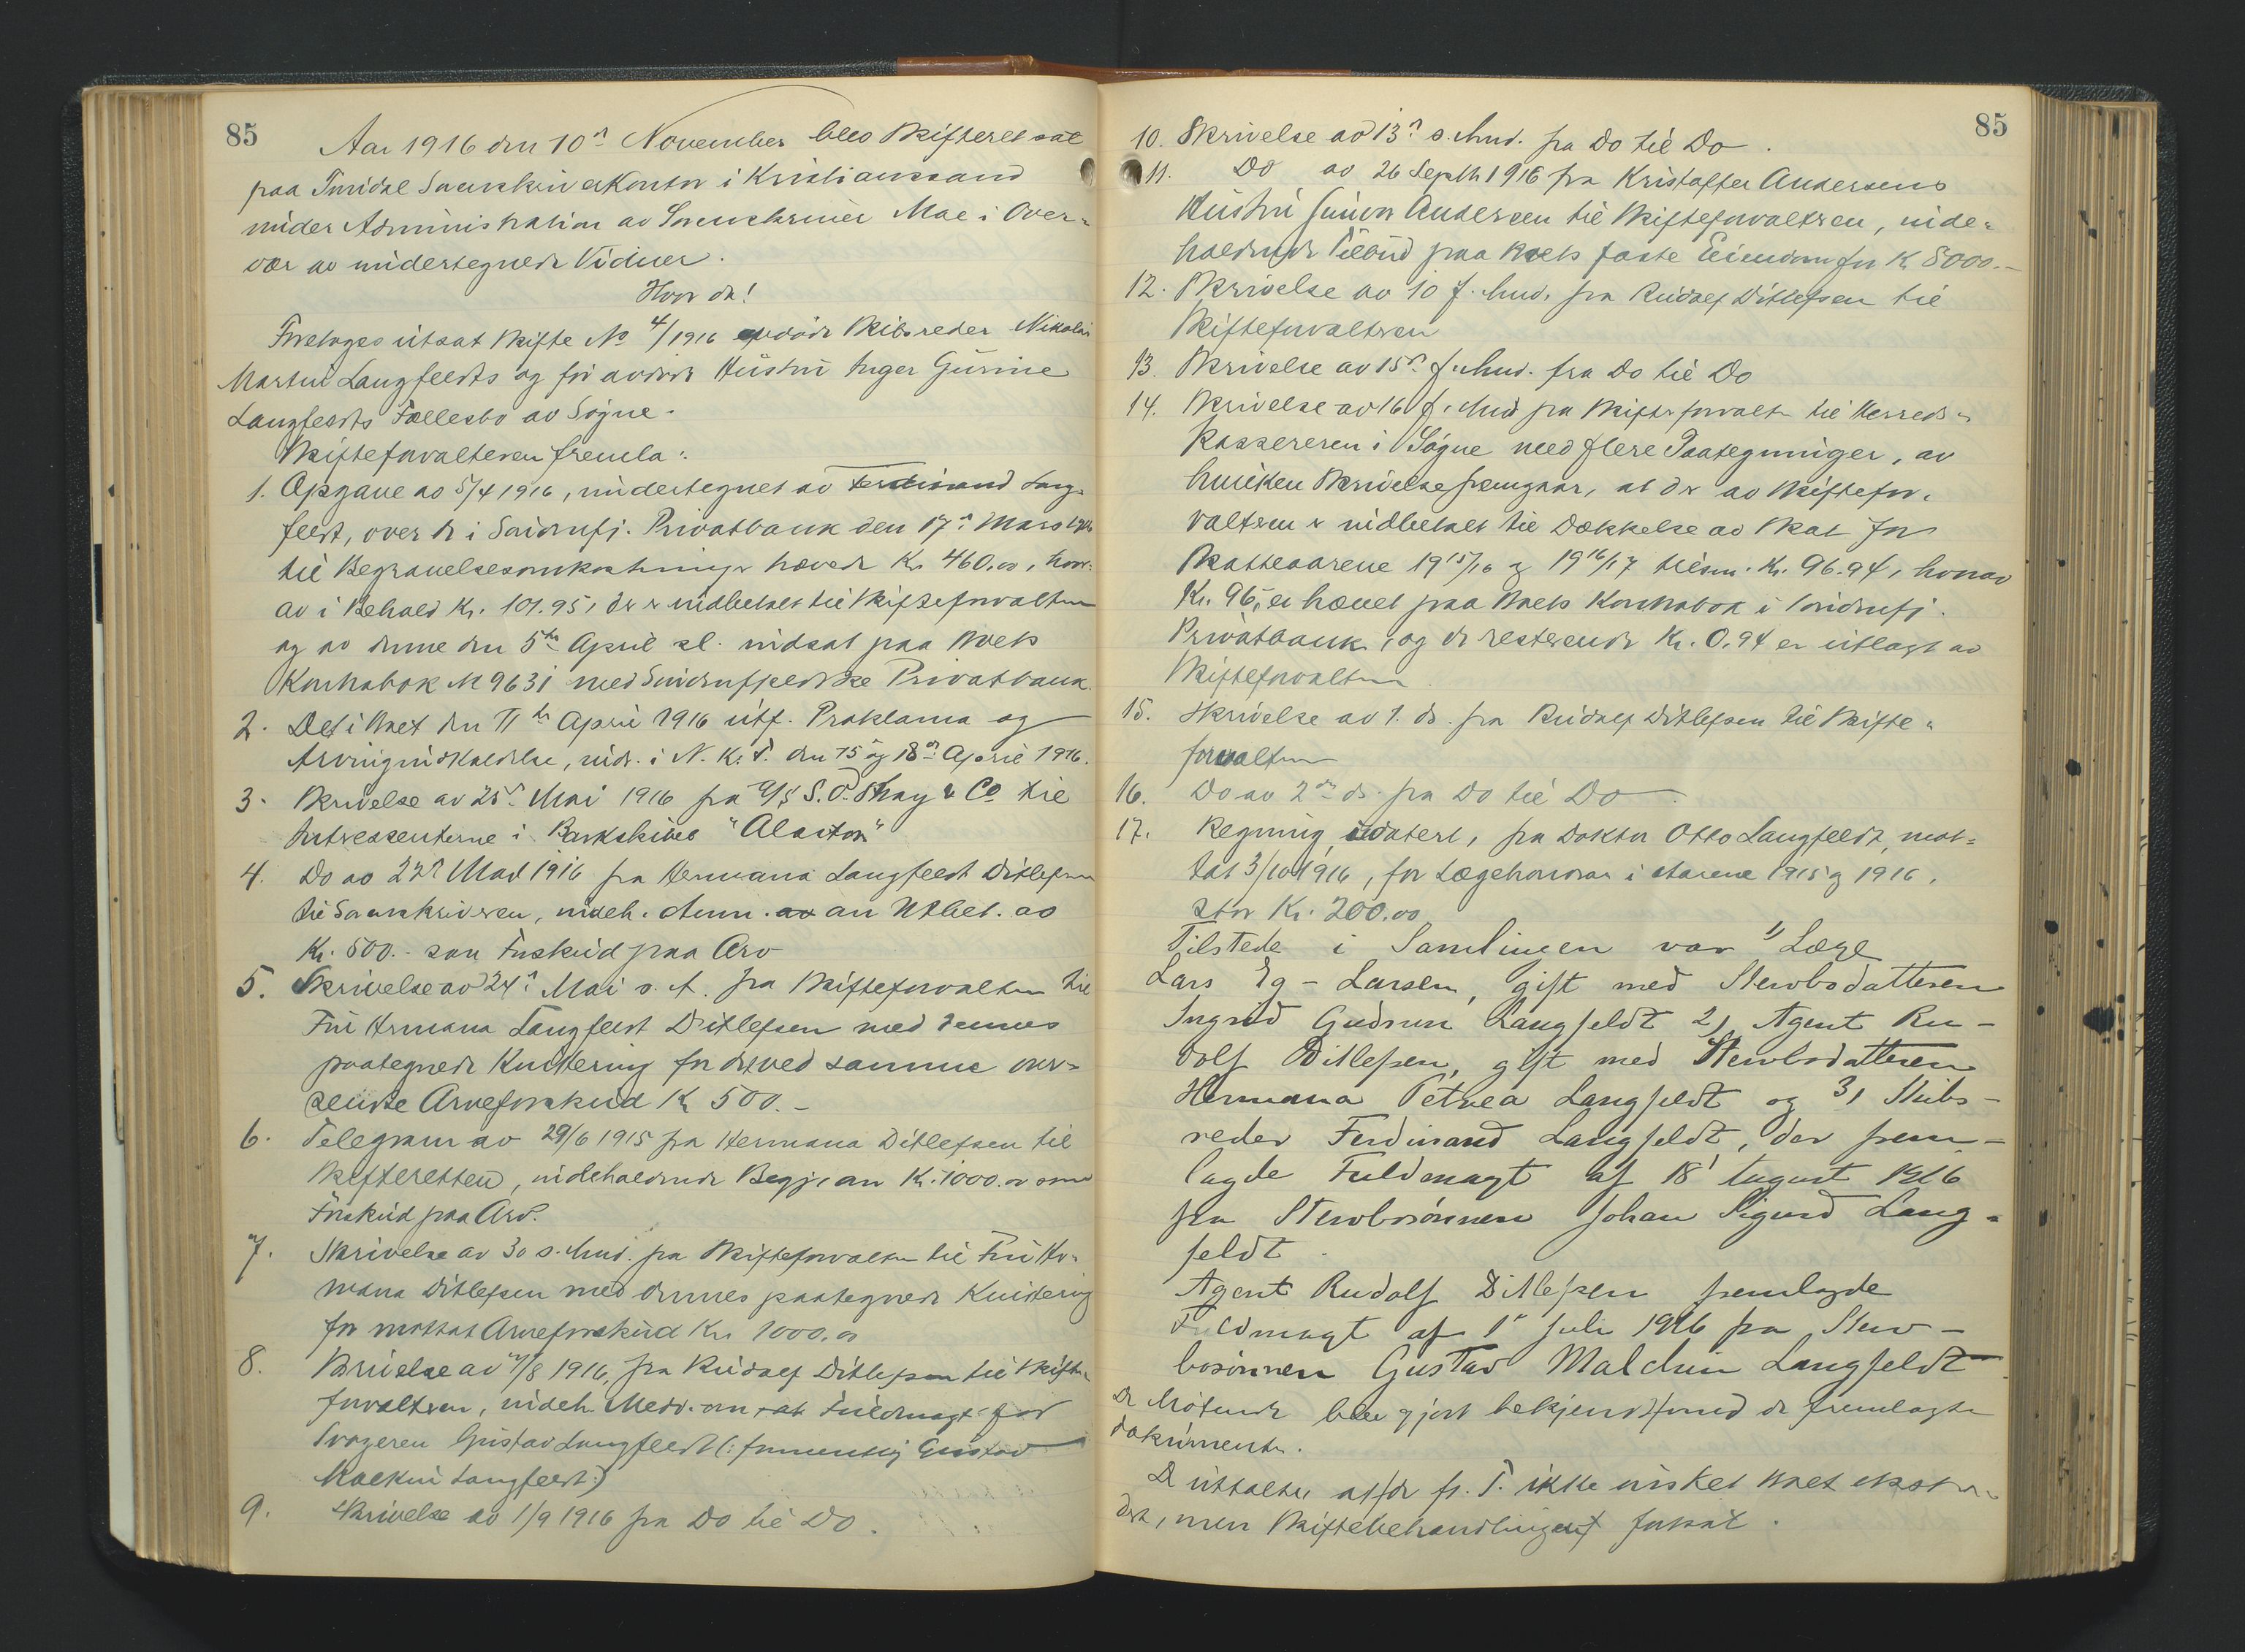 85
Aar 1916 den 10de November blev Skifteret sat
paa Torridal Sorenskriverkontor i Kristianssand
under Administration av Sorenskriver Moe i Over-
vær av undertegnede Vidner.
Hvor da!
Foretoges utsat Skifte No 4/1916 avdøde Skibsreder Nikolai
Martin Langfeldts og før avdøde Hustru Inger Gurine
Langfeldts Fællesbo av Søgne.
Skifteforvalteren fremla:
1. Opgave av 5/4 1916, undertegnet av Ferdinand Lang-
feldt, over de i Søndenfj. Privatbank den 17de Mars 1916
til Begravelsesomkostninger hævede Kr. 460.00, hvor-
av i Behold Kr. 101.95, der er indbetalt til Skifteforvalteren
og av denne den 5te April sl. indsat paa Boets
Kontrabok No 9631 med Søndenfjeldske Privatbank.
2. Det i Boet den 11te April 1916 utf. Proklama og
Arvingindkaldelse, indr. i N. K. T. den 15 og 18de April 1916.
3. Skrivelse av 25de Mai 1916 fra A/S S. O. Stray & Co til
Intressenterne i Barkskibet "Alastor"
4. Do av 22de Mai 1916 fra Hermana Langfeldt Ditlefsen
til Sorenskriveren, indeh. Anm. av an Utbet. av
Kr. 500.- som Forskud paa Arv
5. Skrivelse av 24de Mai s. A. fra Skifteforvalteren til
Fru Hermana Langfeldt Ditlefsen med dennes
paategnede Kvittering for det ved samme over-
sendte Arveforskud Kr 500.-
6. Telegram av 29/6 1915 fra Hermana Ditlefsen til
Skifteretten, indeholdende Begj. an Kr. 1000.00 som
Forskud paa Arv.
7. Skrivelse av 30 s. Mnd. fra Skifteforvalteren til Fru Her-
mana Ditlefsen med dennes paategnede Kvittering
for mottat Arveforskud Kr. 1000.00
8. Skrivelse av /8 1916, fra Rudolf Ditlefsen til Skifte-
forvalteren, indeh. Medd. om at Fuldmagt for
Svogeren Gustav Langfeldt (: formentlig Gustav
Malkin Langfeldt:)
9. Skrivelse av 1/9 1916 fra Do til Do.
85
10. Skrivelse av 13de s. Mnd. fra Do til Do.
11. Do av 26 Septb 1916 fra Kristoffer Andersens
Hustru Andersen til Skifteforvalteren, inde-
holdende Tilbud paa Boets faste Eiendom for Kr 8000.-
12. Skrivelse av 10 f. Mnd. fra Rudolf Ditlefsen til
Skifteforvalteren
13. Skrivelse av 15de f. Mnd. fra Do til Do
14. Skrivelse av 16 f. Mnd fra Skifteforvalt. til Herreds-
kassereren i Søgne med flere Paategninger, av
hvilken Skrivelse fremgaar, at der av Skiftefor-
valteren er indbetalt til Dækkelse av Skat for
Skatteaarene 1915/16 og 1916/17 tilsm. Kr. 96.94, hvorav
Kr. 96,- er hævet paa Boets Kontrabok i Søndenfj.
Privatbank, og de resterende Kr. 0.94 er utlagt av
Skifteforvalteren
15. Skrivelse av 1. ds. fra Rudolf Ditlefsen til Skifte-
forvalteren
16. Do av 2den ds. fra Do til Do.
17. Regning, udatert, fra Doktor Otto Langfeldt, mot-
tat 3/10 1916, for Lægehonorar i Aarene 1915 og 1916,
stor Kr. 200.00
Tilstede i Samlingen var 1) Læge
Lars Eg-Larsen, gift med Stervbodatteren
Ingrid Gudrun Langfeldt 2) Agent Ru-
dolf Ditlefsen, gift med Stervbodatteren
Hermana Petrea Langfeldt og 3) Skibs-
reder Ferdinand Langfeldt, der frem-
lagde Fuldmagt af 18' August 1916
fra Stervbosønnen Johan Sigurd Lang-
feldt.
Agent Rudolf Ditlefsen fremlagde
Fuldmagt af 1' Juli 1916 fra Sterv-
bosønnen Gustav Malchin Langfeldt
De Møtende blev gjort bekjendt med de fremlagte
Dokumenter.
De uttalte at de fr. T. ikke ønsket Boet ekstra-
dert, men Skiftebehandlingen fortsat.